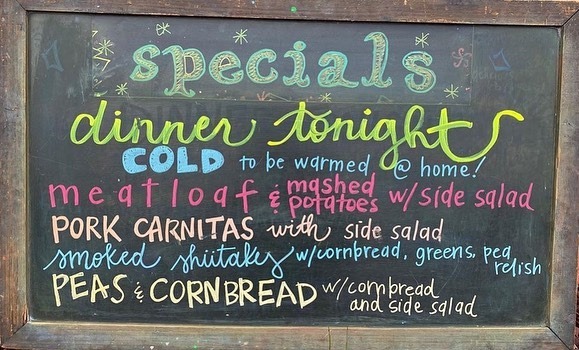 specials
dinner tonight
COLD to be warmed @ home!
meatloaf & mashed potatoes w/ side salad
PORK CARNITAS with side salad
smoked shiitakes w/cornbread, greens, pea relish
PEAS & CORNBREAD w/cornbread and side salad